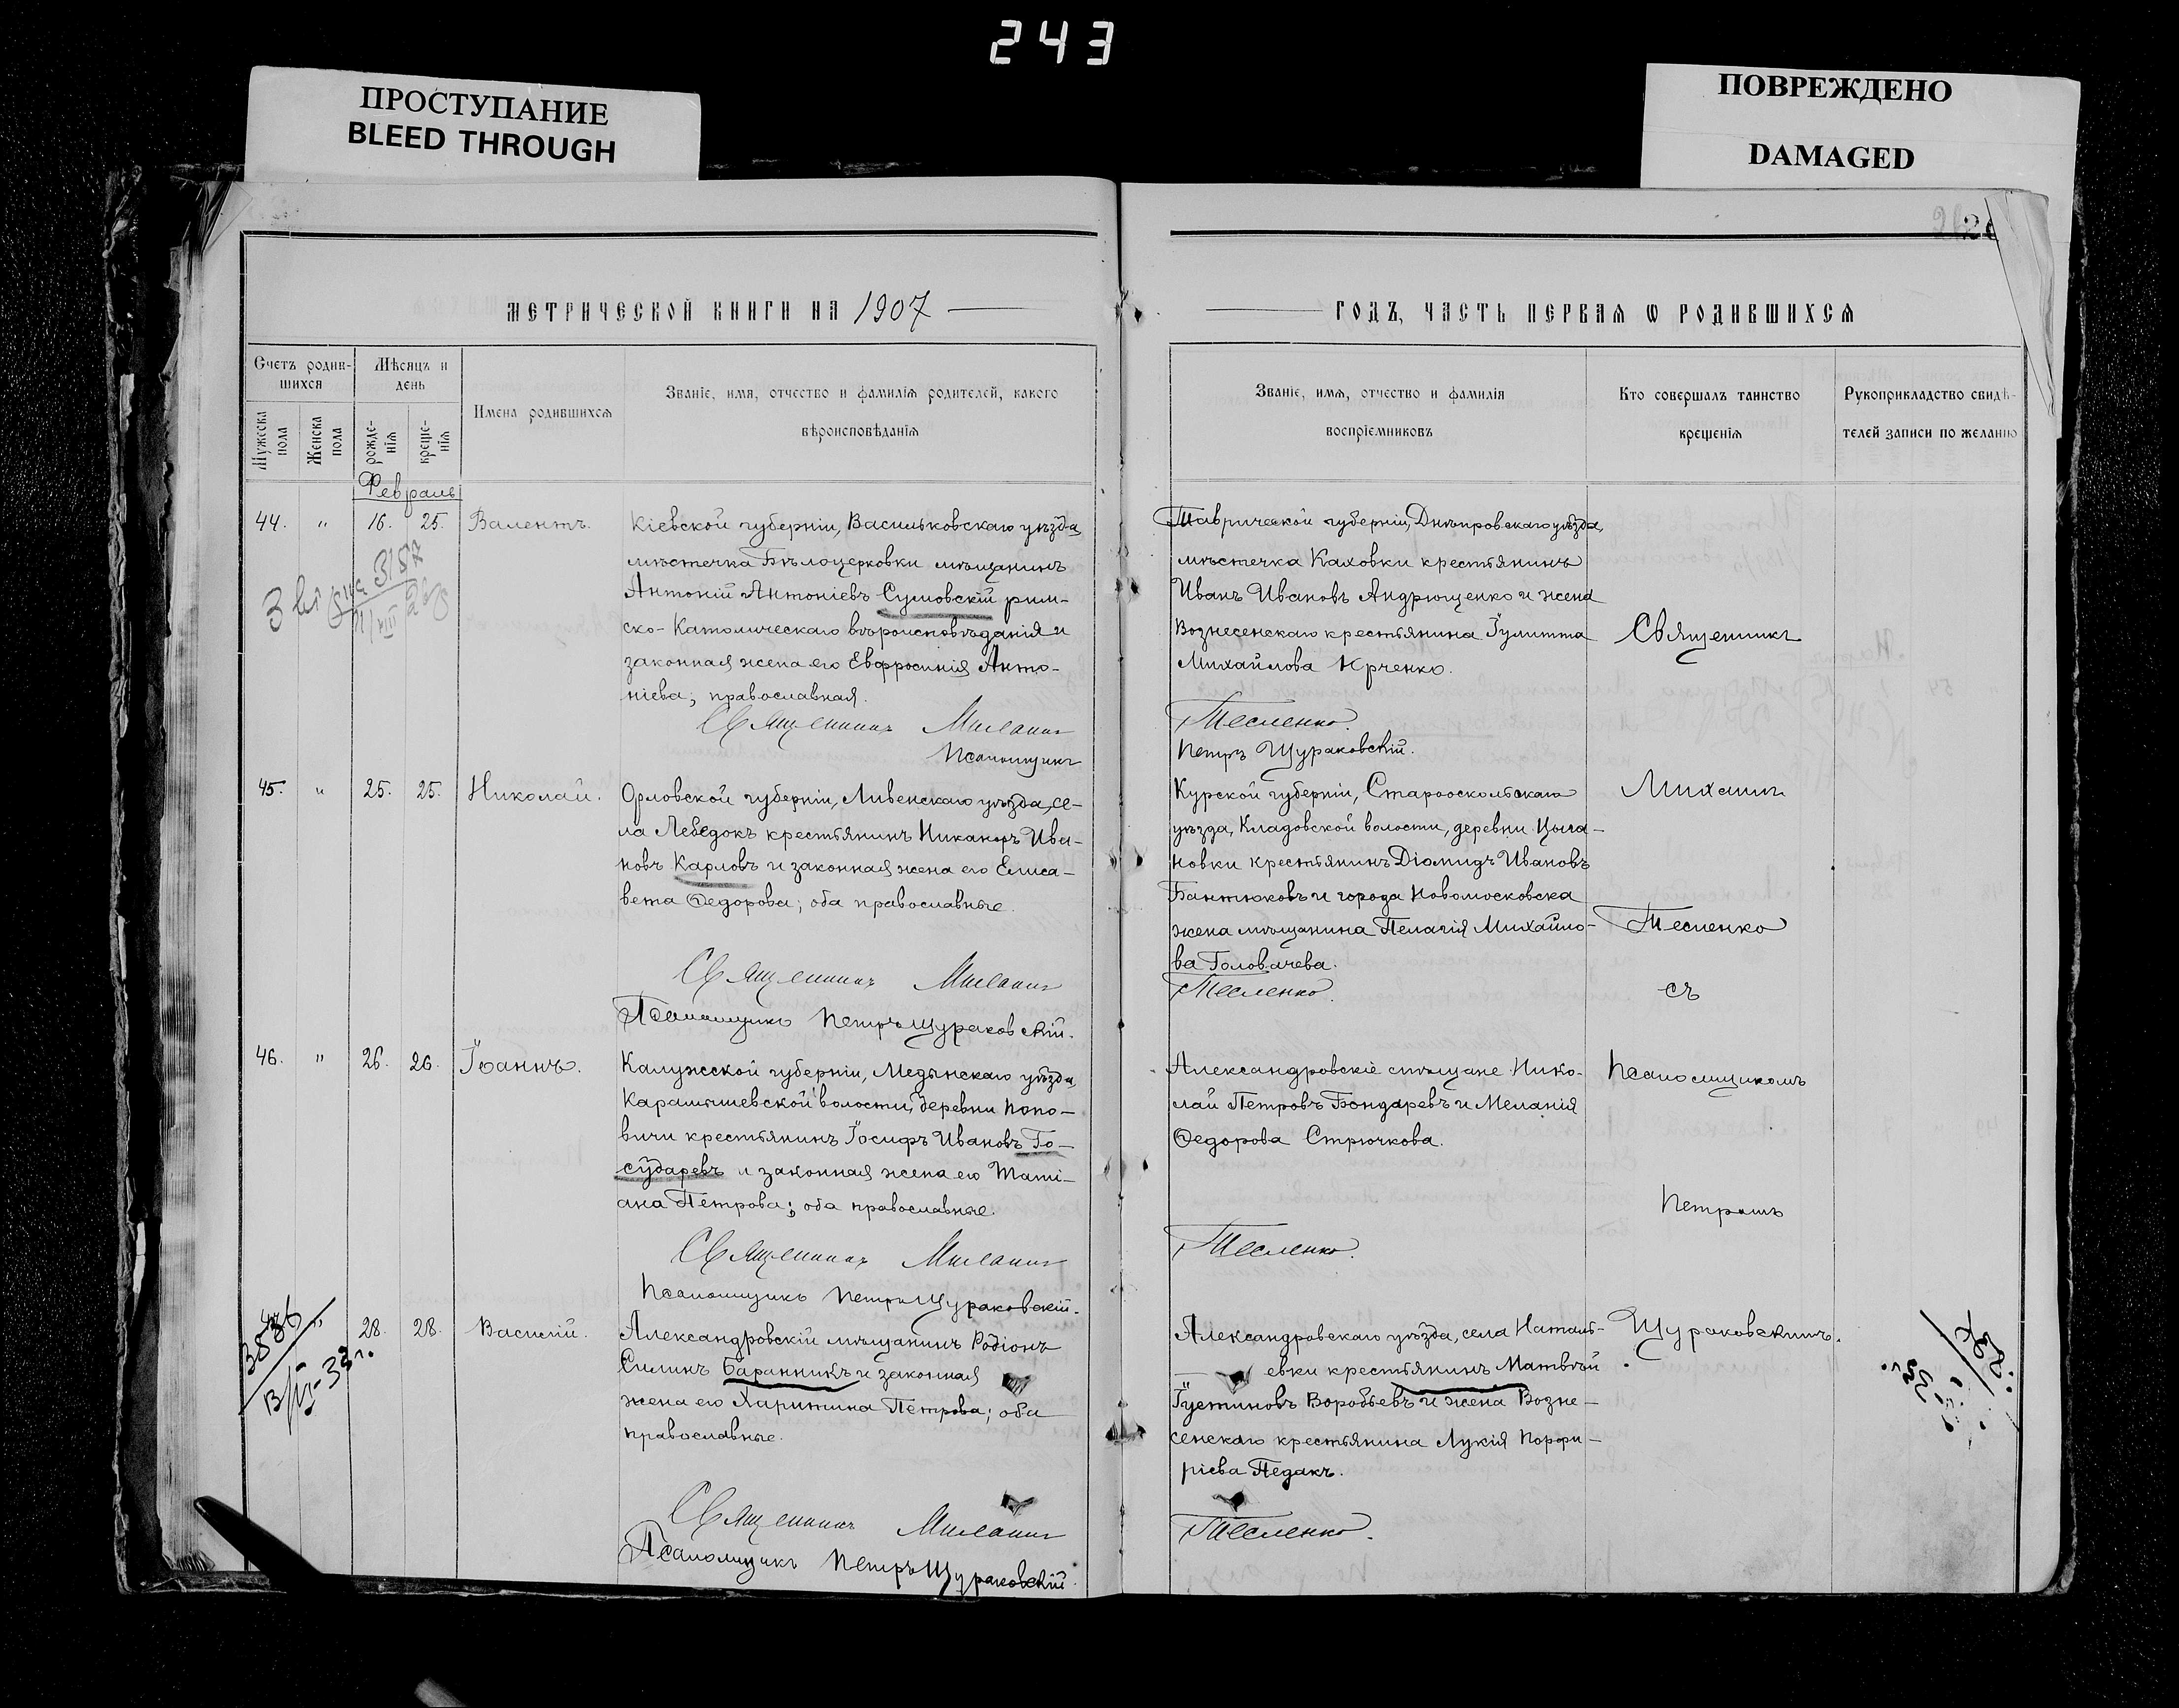 243
ПРОСТУПАНИЕ
BLEED THROUGH
ПОВРЕЖДЕНО
DAMAGED
МЕТРИЧЕСКОЙ КНИГИ НА 1907
ГОДЪ, ЧАСТЬ ПЕРВАЯ Ѡ РОДИВШИХСЯ
Счетъ родив-
шихся
Мѣсяцъ и
день
Мужеска
пола
Женска
пола
рожде-
нія
креще-
нія
Имена родившихся
Званіе, имя, отчество и фамилія родителей, какого
вѣроисповѣданія
Званіе, имя, отчество и фамилія
воспріемниковъ
Кто совершалъ таинство
крещенія
Рукоприкладство свидѣ-
телей записи по желанію
Февраль
44. " 16. 25. Валентъ.
Кіевской губерніи, Васильковскаго уѣзда,
мѣстечка Бѣлоцерковки мѣщанинъ
Антоній Антоніевъ Сумовскій рим-
ско-Католическаго вѣроисповѣданія и
законная жена его Евфросинія Анто-
ніева; православная.
Священникъ Михаилъ
Псаломщикъ
Таврической губерніи, Днѣпровскаго уѣзда,
мѣстечка Каховки крестьянинъ
Иванъ Ивановъ Андрющенко и жена
Вознесенскаго крестьянина Іулитта
Михайлова Юрченко.
Тесленко.
Петръ Щураковскій.
Священникъ
45. " 25. 25. Николай.
Орловской губерніи, Ливенскаго уѣзда, се-
ла Лебедокъ крестьянинъ Никаноръ Ива-
новъ Карловъ и законная жена его Елиса-
вета Ѳедорова; оба православные.
Священникъ Михаилъ
Псаломщикъ Петръ Щураковскій.
Курской губерніи, Старооскольскаго
уѣзда, Кладовской волости, деревни Цыга-
новки крестьянинъ Діомидъ Ивановъ
Бантюковъ и города Новомосковска
жена мѣщанина Пелагія Михайло-
ва Головачева.
Тесленко.
Михаилъ
Тесленко
съ
46. " 26. 26. Іоаннъ.
Калужской губерніи, Медынскаго уѣзда,
Карамышевской волости, деревни Попо-
вичи крестьянинъ Іосифъ Ивановъ Го-
сударевъ и законная жена его Таті-
ана Петрова; оба православные.
Священникъ Михаилъ
Псаломщикъ Петръ Щураковскій.
Александровскіе мѣщане Нико-
лай Петровъ Бондаревъ и Меланія
Ѳедорова Стрючкова.
Тесленко.
Псаломщикомъ
Петромъ
28. 28. Василій.
Александровскій мѣщанинъ Родіонъ
Силинъ Баранникъ и законная
жена его Харитина Петрова; оба
православные.
Священникъ Михаилъ
Псаломщикъ Петръ Щураковскій.
Александровскаго уѣзда, села Наталь-
евки крестьянинъ Матвѣй
Іустиновъ Воробьевъ и жена Возне-
сенскаго крестьянина Лукія Порфи-
ріева Педакъ.
Тесленко.
Щураковскимъ.